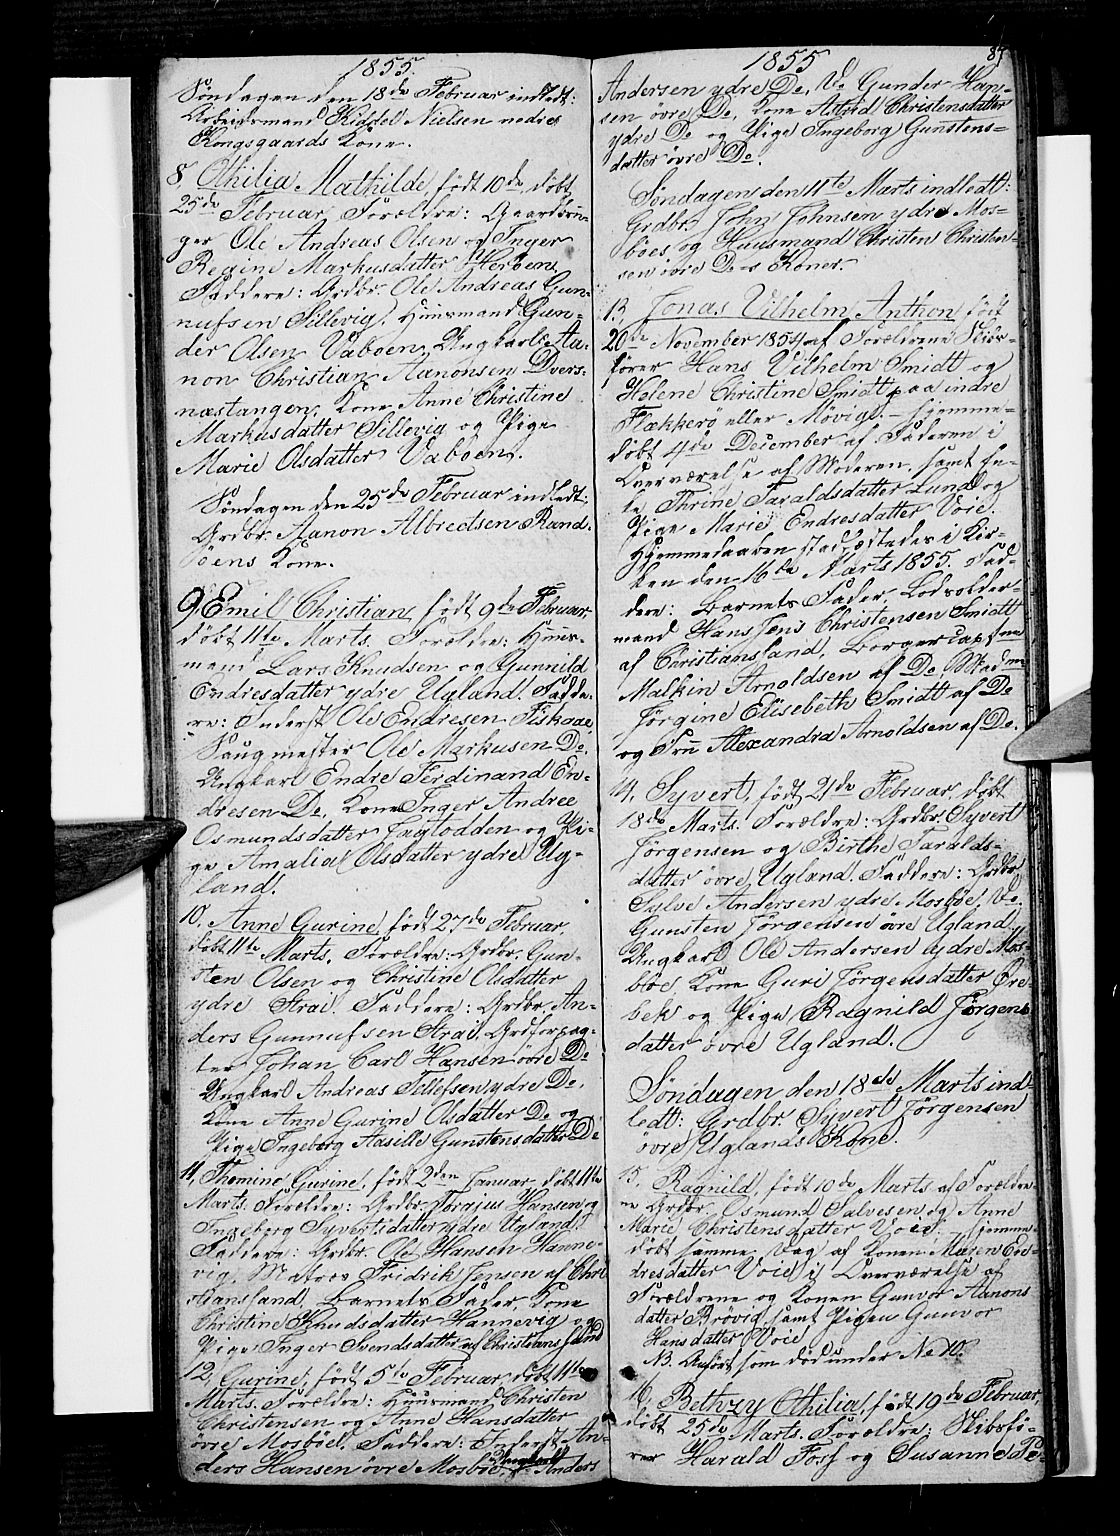 1855.
Søndagen den 18de Februar indledt:
Arbeidsmand Kiddel Nielsen nedre
Kongsgaards Kone.
8, Othilia Mathilde, født 10de, døbt
25de Februar. Forældre: Gaardbru-
ger Ole Andreas Olsen og Inger
Regine Markusdatter Herøen.
Faddere: Grdbr. Ole Andreas Gun-
nufsen Sillevig, Huusmand Gun-
der Olsen Vaboen, Ungkarl Aa-
non Christian Aanonsen Dvers-
næstangen, Kone Anne Christine
Markusdatter Sillevig og Pige
Marie Olsdatter Vaboen.
Søndagen den 25de Februar indledt:
Grdbr. Aanon Albretsen Rand-
øens Kone.
9, Emil Christian, født 9de Februar,
døbt 11te Marts. Forældre: Huus-
mand Lars Knudsen og Gunnild
Endresdatter ydre Ugland. Fadde-
re: Inderst Ole Endresen Fiskaae,
Saugmester Ole Markusen Do,
Ungkarl Endre Ferdinand En-
dresen Do, Kone Inger Andree
Osmundsdatter Fagtodden og Pi-
ge Amalia Olsdatter ydre Ug-
land.
10, Anne Gurine, født 27de Februar,
døbt 11te Marts. Forældre: Grdbr. Gun-
sten Olsen og Christine Olsdatter
ydre Strai. Faddere: Grdbr. An-
ders Gunnufsen Strai, Grdforpag-
ter Johan Carl Hansen øvre Do
Ungkarl Andreas Tellefsen ydre Do,
Kone Anne Gurine Olsdatter Do og
Pige Ingeborg Aasille Gunstensdatter Do
11, Thomine Gurine, født 2den Januar, døbt 11te
Marts. Forældre: Grdbr. Torgius Hansen og
Ingeborg Syvertsdatter ydre Ugland.
Faddere: Grdbr. Ole Hansen Hanne-
vig, Matros Fridrik Jensen af Chri-
stiansand, Barnets Fader, Kone
Christine Knudsdatter Hannevig og
Pige Inger Svendsdatter af Christianssand
12, Gurine, født 5te Februar, døbt 11te
Marts. Forældre: Huusmand Christen
Christensen og Anne Hansdatter
øvre Mosbøe. Faddere: Inderst An-
ders Hansen øvre Mosbøe, Ungkarl Anders
1855
87
Andersen ydre Do, Do Gunder Han-
sen øvre Do, Kone Astrid Christensdatter
ydre Do og Pige Ingeborg Gunstens-
datter øvre Do.
Søndagen den 11te Marts indledt:
Grdbr. John Johnsen ydre Mos-
bøes og Huusmand Christen Christen-
sen øvre Do's Koner.
13, Jonas Vilhelm Anthon, født
20de November 1854 af Forældrene Skibs-
fører Hans Vilhelm Smidt og
Helene Christine Smidt paa indre
Flækkerø eller Møvig. – hjemme-
døbt 4de December af Faderen i
Overværelse af Moderen, samt En-
ke Thrine Taraldsdatter Lund og
Pige Marie Endresdatter Voie.
Hjemmedaaben stadfæstedes i Kir-
ken den 16de Marts 1855. Fad-
dere: Barnets Fader, Lodsolder-
mand Hans Jens Christensen Smidt
af Christiansand, Borgercaptein
Malkin Arnoldsen af Do Madm
Jørgine Elisebeth Smidt af Do
og Fru Alexandra Arnoldsen af Do.
14, Syvert, født 21de Februar, døbt
18de Marts. Forældre: Grdbr. Syvert
Jørgensen og Birthe Taralds-
datter øvre Ugland. Faddere: Grdbr.
Sylve Andersen ydre Mosbøe, Do
Gunsten Jørgensen øvre Ugland,
Ungkarl Ole Andersen ydre Mos-
bøe, Kone Guri Jørgensdatter Øre-
bek og Pige Ragnild Jørgens-
datter øvre Ugland.
Søndagen den 18de Marts ind-
ledt: Grdbr. Syvert Jørgensen
øvre Uglands Kone.
15, Ragnild, født 10de Marts af Forældre-
ne Grdbr. Osmund Salvesen og Anne
Marie Christensdatter Voie. – hjemme-
døbt samme Dag af Konen Maren En-
dresdatter Voie i Overværelse af
Forældrene og Konen Gunvor Aanons-
datter Brøvig samt Pigen Gunvor
Hansdatter Voie
NB. Anført som død under No 10.
16, Bethzy Othilia, født 19de Februar,
døbt 25de Marts. Forældre: Skibsfø-
rer Harald Foss og Susanne Pe-